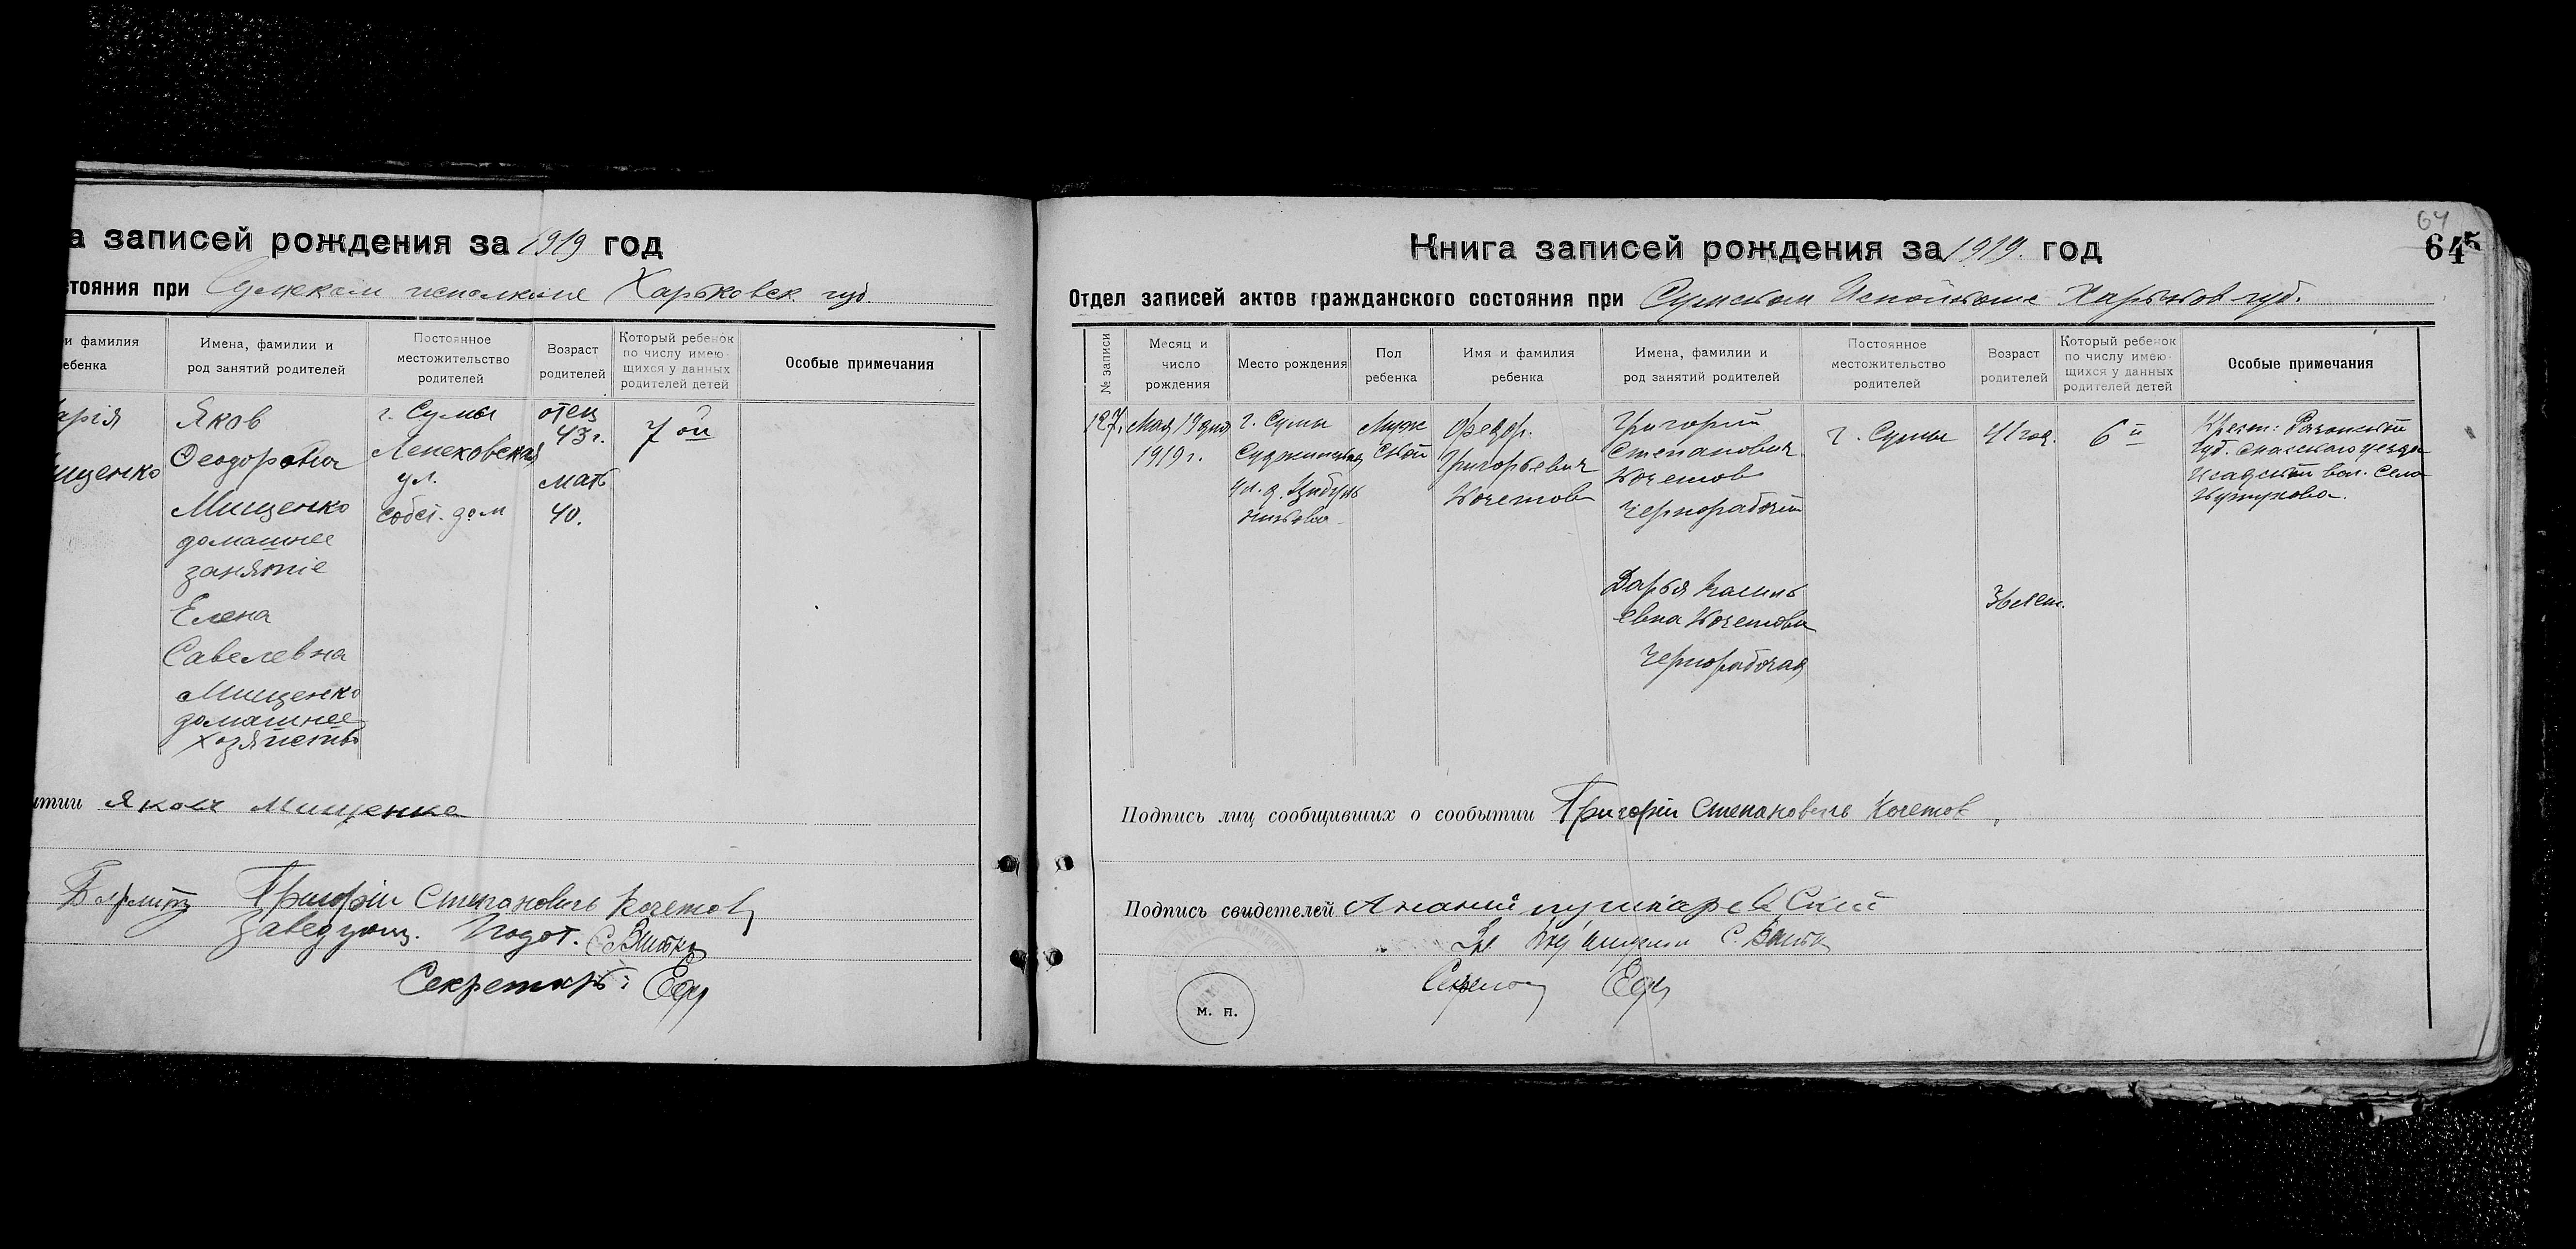 а записей рождения за 1919 год
стояния при Сумском исполкоме Харьковск. губ.
и фамилия
ебенка
Имена, фамилии и
род занятий родителей
Постоянное
местожительство
родителей
Возраст
родителей
Который ребенок
по числу имею-
щихся у данных
родителей детей
Особые примечания
арія
ищенко
Яков
Феодорович
Мищенко
домашнее
занятіе
Елена
Савелевна
Мищенко
домашнее
хозяйство
г. Сумы
ул.
собст. дом
отец
43 г.
мать
40.
7 ой
ытии Яков Мищенко
Григорiи Степановичь Кочетов
Заведующ.
Секретарь:
64
645
Книга записей рождения за 1919. год
Отдел записей актов гражданского состояния при Сумском Исполкоме Харьков губ.
№ записи
Месяц и
число
рождения
Место рождения
Пол
ребенка
Имя и фамилия
ребенка
Имена, фамилии и
род занятий родителей
Постоянное
местожительство
родителей
Возраст
родителей
Который ребенок
по числу имею-
щихся у данных
родителей детей
Особые примечания
127.
Мая 19 дня
1919 г.
г. Сумы
Суджинская
ул. д.
Муж
ской
Федор.
Григорьевич
Кочетов
Григорий
Степанович
Кочетов
чернорабочий
Дарья Василь
евна Кочетова
чернорабочая
г. Сумы
41 год.
36 лет.
6 й
Крест. Рязанской
губ. Спасского уезда
Исадской вол. Села
Кутукова.
Подпись лиц сообщивших о сообытии Григорiи Степановичь Кочетов
Подпись свидетелей Ананий Пушкаревский
м. п.